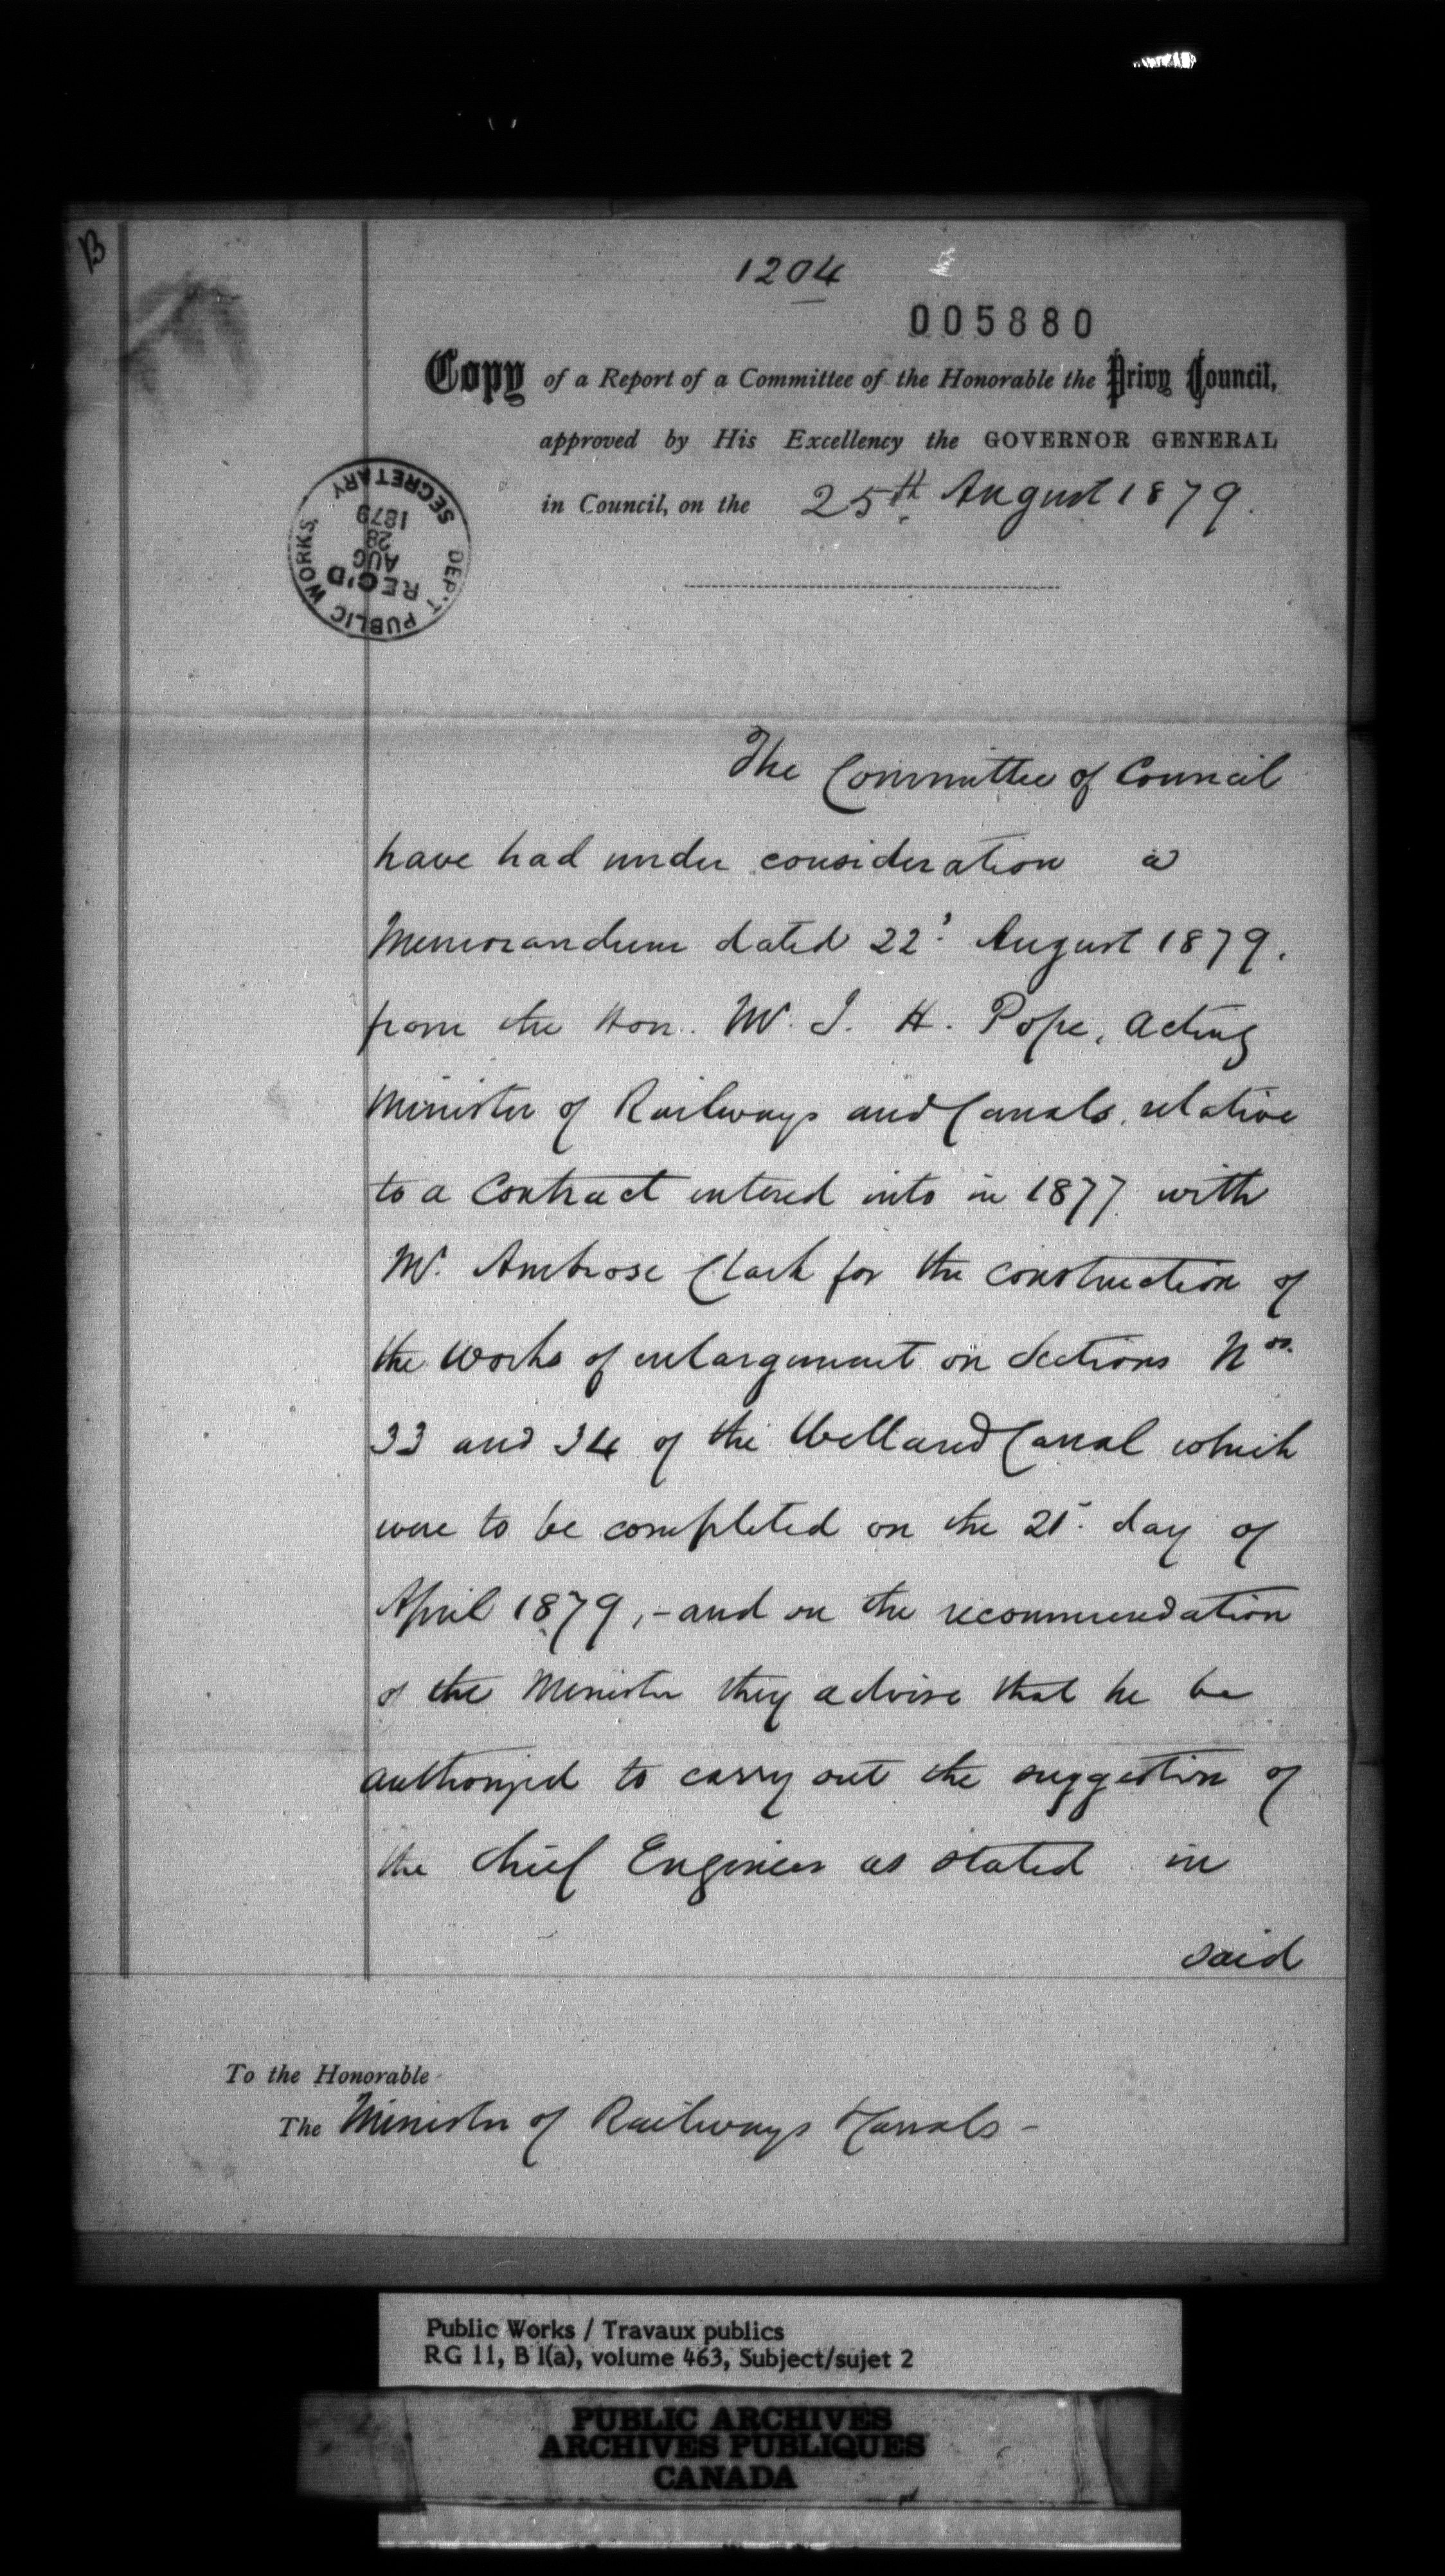 B
1204
005880
Copy of a Report of a Committee of the Honorable the Privy Council,
approved by His Excellency the GOVERNOR GENERAL
in Council, on the 25th August 1879.
DEP'T PUBLIC WORKS. SECRETARY
REC'D
AUG
28
1879
The Committee of Council
have had under consideration a
Memorandum dated 22d August 1879.
from the Hon. Mr. J. H. Pope, Acting
Minister of Railways and Canals, relative
to a Contract entered into in 1877 with
Mr. Ambrose Clark for the construction of
the works of enlargement on Sections Nos.
33 and 34 of the Welland Canal which
were to be completed on the 21st day of
April 1879, - and on the recommendation
of the Minister they advise that he be
authorized to carry out the suggestion of
the Chief Engineer as stated in
said
To the Honorable
The Minister of Railways & Canals -
Public Works / Travaux publics
RG 11, B 1(a), volume 463, Subject/sujet 2
PUBLIC ARCHIVES
ARCHIVES PUBLIQUES
CANADA